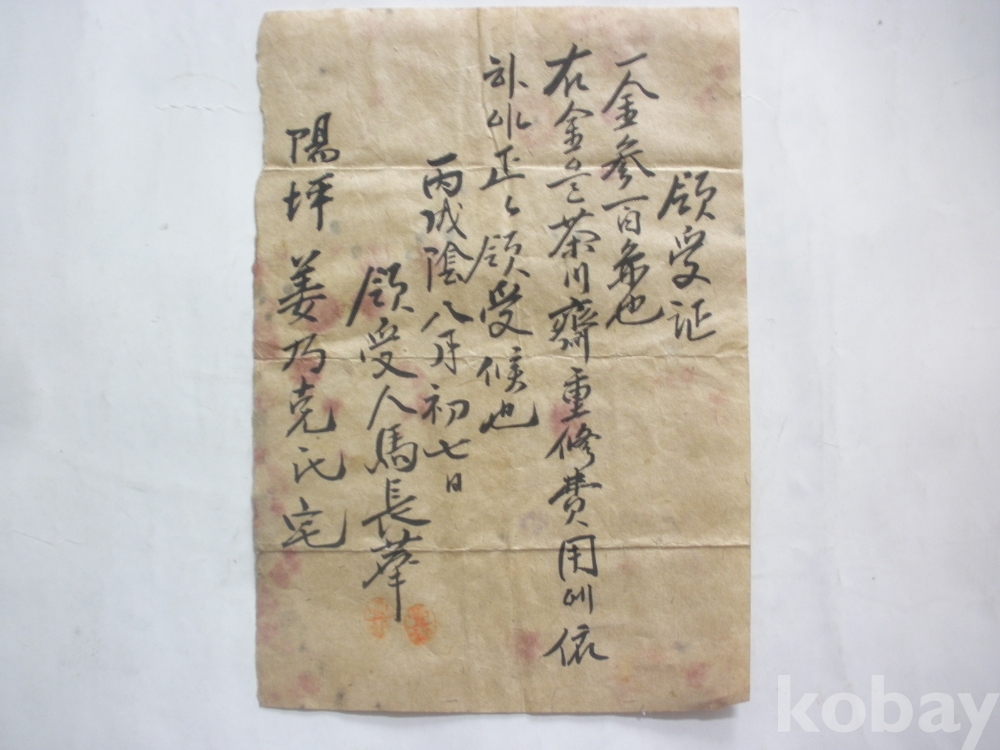 領受证
一金参百也
右金은茶川齋重修費用에依
하야正々領受候也
丙戌陰八月初七日
領受人馬長華
陽坪姜乃克氏宅
kobay